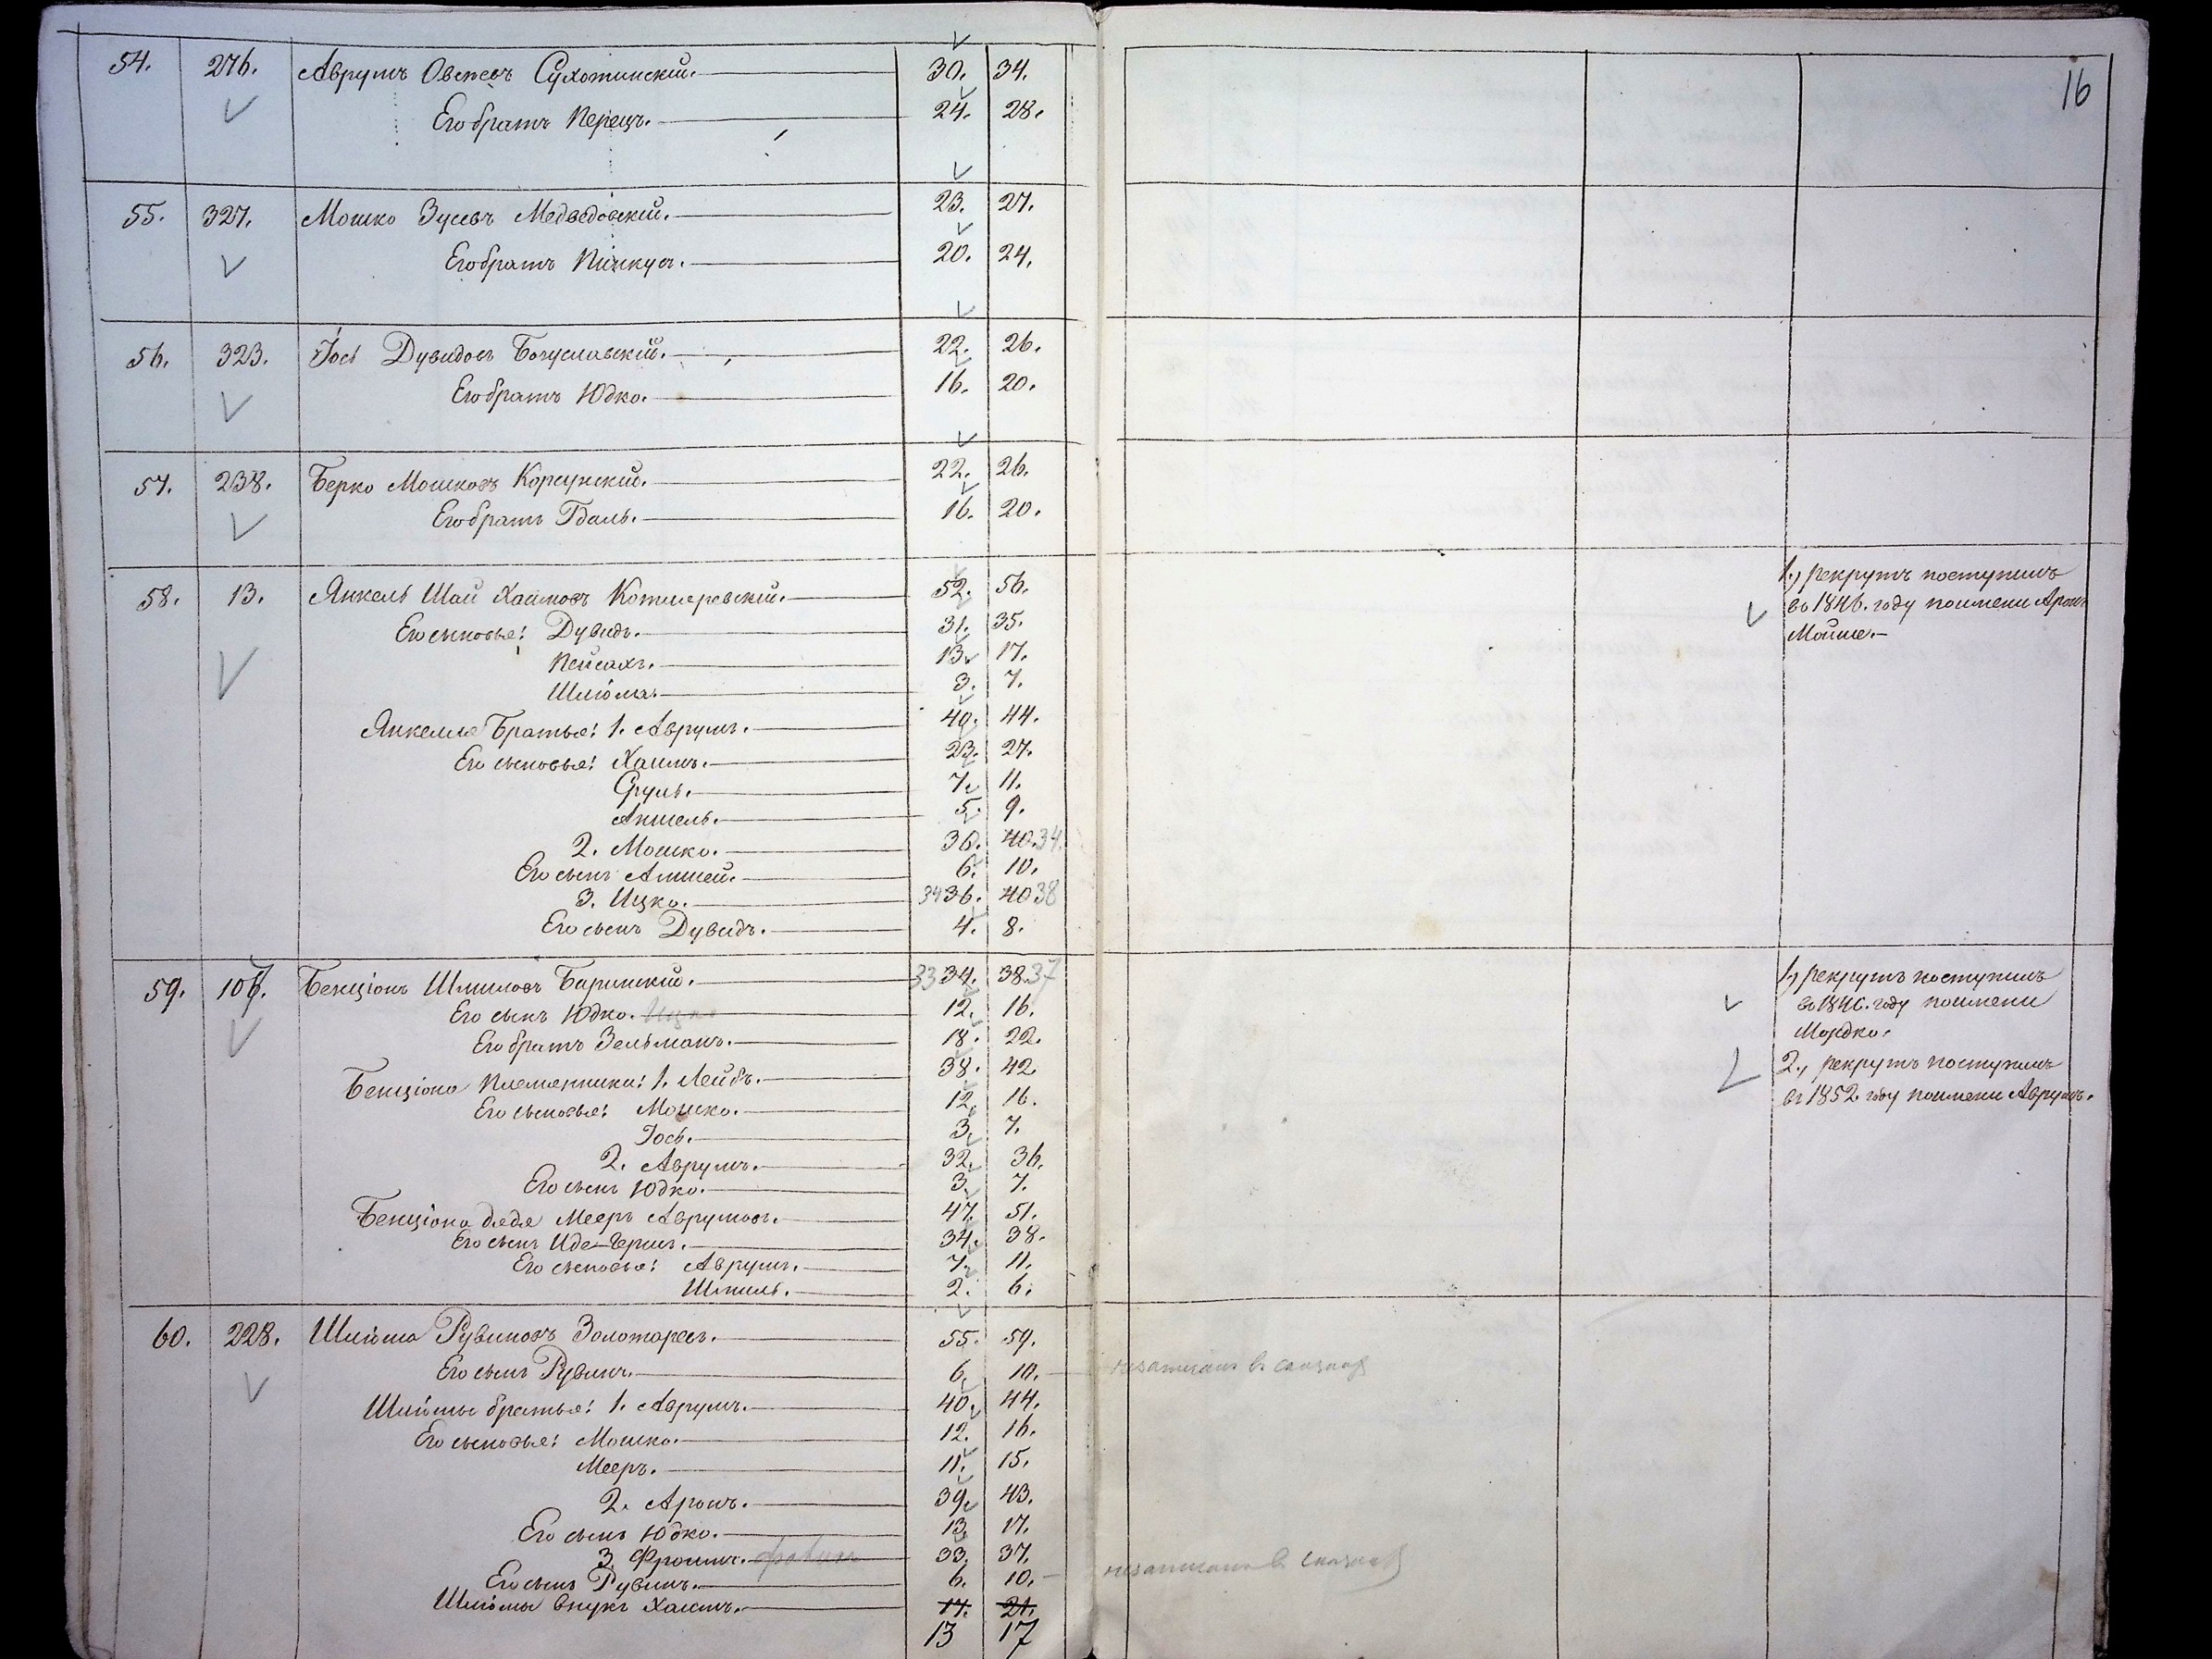 16
54. 276. Аврумъ Овсеевъ Сухотинскій. 30. 34.
Его братъ Перецъ. 24. 28.
55. 327. Мошко Зусевъ Медведовскій. 23. 27.
Его братъ Пинкусъ. 20. 24.
56. 323. Іось Дувидовъ Богуславскій. 22. 26.
Его братъ Юдко. 16. 20.
57. 238. Берко Мошковъ Корсунскій. 22. 26.
Его братъ Гдаль. 16. 20.
58. 13. Янкель Шай Хаимовъ Котляревскій. 52. 56.
Его сыновья: Дувидъ. 31. 35.
Пейсахъ. 13. 17.
Шліома. 3. 7.
Янкеля Братья: 1. Аврумъ. 40. 44.
Его сыновья: Хаимъ. 23. 27.
Сруль. 7. 11.
Аншель. 5. 9.
2. Мошко. 36. 40. 34.
Его сынъ 6. 10.
3. Ицко. 34 36. 40 38
Его сынъ Дувидъ. 4. 8.
1., рекрутъ поступилъ
въ 1846. году поимени Аронъ
Мойше.
59. 107. Бенціонъ Шмилевъ 33 34. 38. 37
Его сынъ Юдко. Ицко 12. 16.
Его братъ Зельманъ. 18. 22.
Бенціона племянники: 1. Лейбъ. 38. 42.
Его сыновья: Мошко. 12. 16.
Іось. 3. 7.
2. Аврумъ. 32. 36.
Его сынъ Юдко. 3. 7.
Бенціона дядя Мееръ Аврумовъ. 47. 51.
Его сынъ Иде-Гершъ. 34. 38.
Его сыновья: Аврумъ. 7. 11.
Шмиль. 2. 6.
1., рекрутъ поступилъ
въ 1846. году поимени
Мордко.
2., рекрутъ поступилъ
въ 1852. году поимени Аврумъ.
60. 228. Шліома Рувиновъ Золотаревъ. 55. 59.
Его сынъ Рувинъ. 6. 10. незаписанъ в сказкахъ
Шліомы братья: 1. Аврумъ. 40. 44.
Его сыновья: Мошко. 12. 16.
Мееръ. 11. 15.
2. Аронъ. 39. 43.
Его сынъ Юдко. 13. 17.
3. Фроимъ. 33. 37.
Его сынъ Рувинъ. 6. 10. незаписанъ в сказкахъ
Шліомы внукъ Хаимъ. 17. 21.
13 17